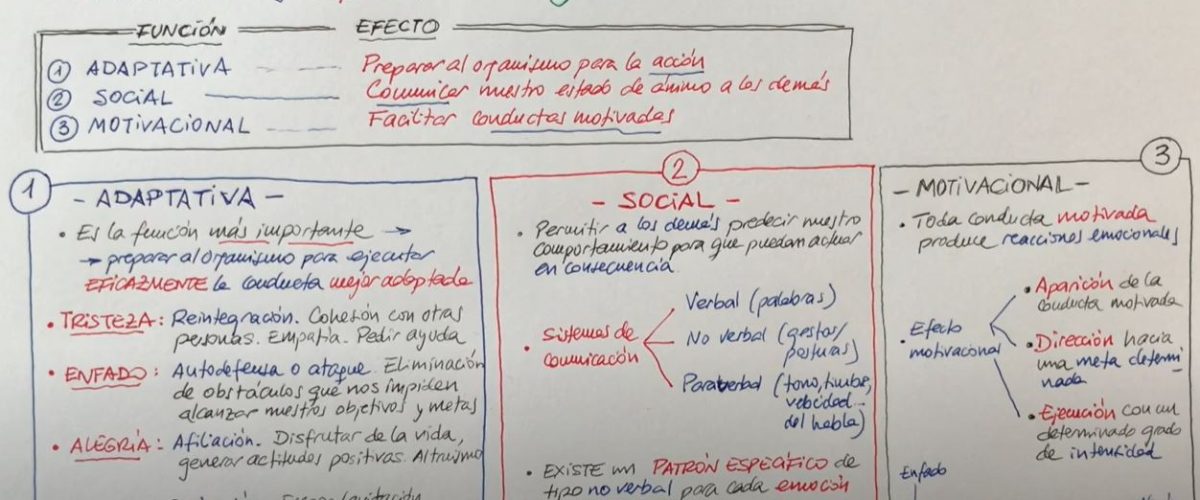 FUNCIÓN EFECTO
① ADAPTATIVA Preparar al organismo para la acción
② SOCIAL Comunicar nuestro estado de ánimo a los demás
③ MOTIVACIONAL Facilitar conductas motivadas
1
- ADAPTATIVA -
• Es la función más importante →
→ preparar al organismo para ejecutar
EFICAZMENTE la conducta mejor adaptada
• TRISTEZA: Reintegración. Cohesión con otras
personas. Empatía. Pedir ayuda
• ENFADO: Autodefensa o ataque. Eliminación
de obstáculos que nos impiden
alcanzar nuestros objetivos y metas
• ALEGRÍA: Afiliación. Disfrutar de la vida,
generar actitudes positivas. Altruismo
2
- SOCIAL -
• Permitir a los demás predecir nuestro
comportamiento para que puedan actuar
en consecuencia
• Sistemas de
comunicación
Verbal (palabras)
No verbal (gestos/
posturas)
Paraverbal (tono, timbre,
velocidad
del habla)
• EXISTE un PATRÓN ESPECÍFICO de
tipo no verbal para cada emoción
3
- MOTIVACIONAL -
• Toda conducta motivada
produce reacciones emocionales
• Efecto
motivacional
• Aparición de la
conducta motivada
• Dirección hacia
una meta determi-
nada
• Ejecución con un
determinado grado
de intensidad
Enfado